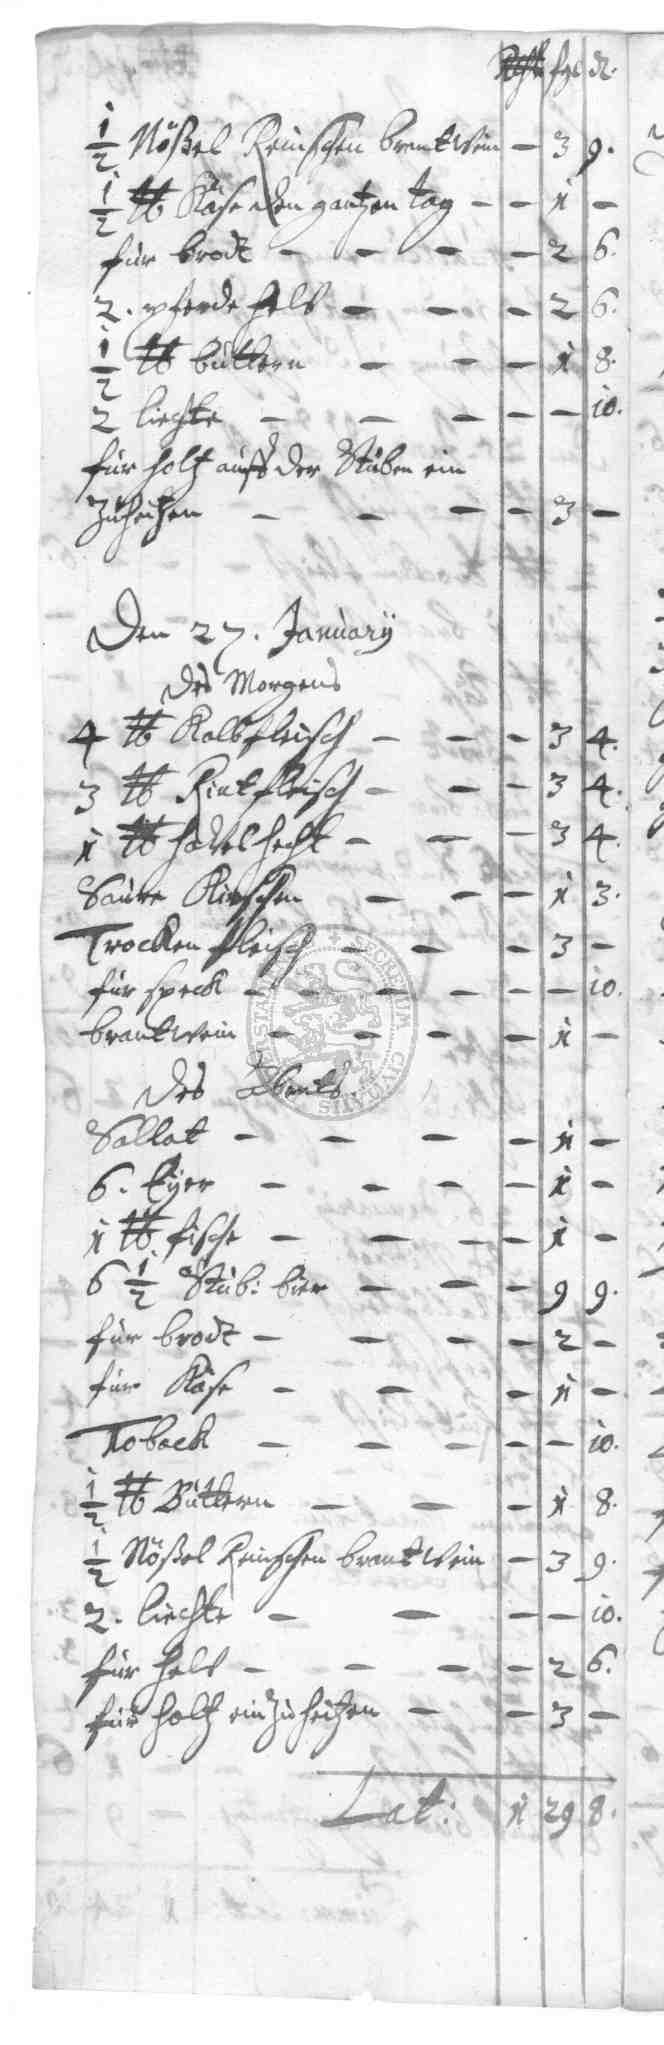 Rthl fgl d.
1/2 Nößel Reinischen brantwein — 3 9.
1/2 ℔ Käse den gantzen tag — — 1 —
für brodt — — — — 2 6.
2. pferde — — — 2 6.
1/2 ℔ buttern — — — 1 8.
2 liechte — — — — — 10.
für holtz auff der Stuben ein
zuheitzen — — — — 3 —
Den 27. January
des Morgens
4 ℔ Kalbfleisch — — — 3 4.
3 ℔ Rintfleisch — — — 3 4.
1 ℔ havelhecht — — — 3 4.
Saure Kirschen — — — 1 3.
Trocken fleisch — — — 3 —
für speck — — — — — — 10.
brantwein — — — — 1 —
des Abents
Sallat — — — — 1 —
6. Eyer — — — — 1 —
1 ℔ fische — — — — 1 —
6 1/2 Stüb: bier — — — 9 9.
für brodt — — — — 2 —
für Käse — — — 1 —
Toback — — — — — 10.
1/2 ℔ Buttern — — — 1 8.
1/2 Nößel Reinischen brantwein — 3 9.
2. liechte — — — — 10.
für — — — — 2 6.
für holtz einzuheitzen — — 3 —
Lat: 1 29 8.